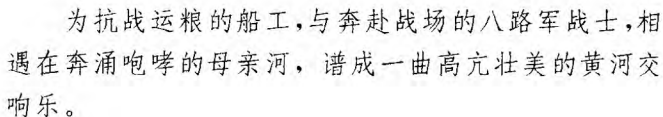 为抗战运粮的船工,与奔赴战场的八路军战士,相
遇在奔涌咆哮的母亲河，谱成一曲高亢壮美的黄河交
响乐。